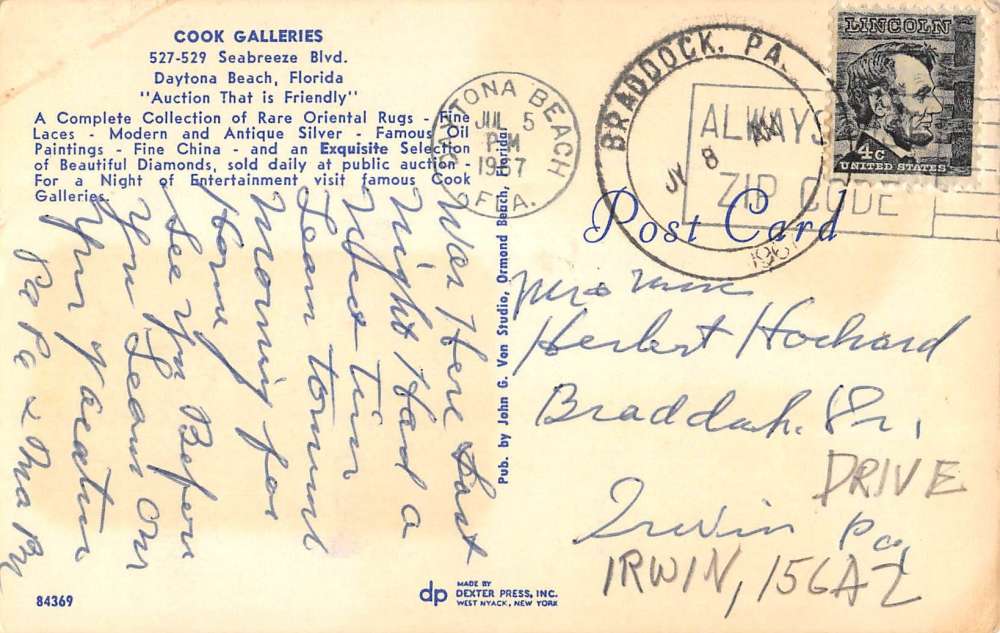 COOK GALLERIES
527-529 Seabreeze Blvd.
Daytona Beach, Florida
"Auction That is Friendly"
A Complete Collection of Rare Oriental Rugs - Fine
Laces - Modern and Antique Silver - Famous Oil
Paintings - Fine China - and an Exquisite Selection
of Beautiful Diamonds, sold daily at public auction -
For a Night of Entertainment visit famous Cook
Galleries.
Was Here Last
Night Had a
Nice Time
Leave tomorrow
Morning for
Home
See You Before
You Leave on
Your Vacation
Pa Pa & Ma Ma
84369
Pub. by John G. Von Studio, Ormond Beach, Florida
dp MADE BY
DEXTER PRESS, INC.
WEST NYACK, NEW YORK
DAYTONA BEACH
JUL 5
PM
1967
FLA.
BRADDOCK, PA.
8
196
ALWAYS
ZIP CODE
LINCOLN
4¢
UNITED STATES
Post Card
Mrs
Herbert
Dr.
DRIVE
Irwin Pa,
IRWIN,